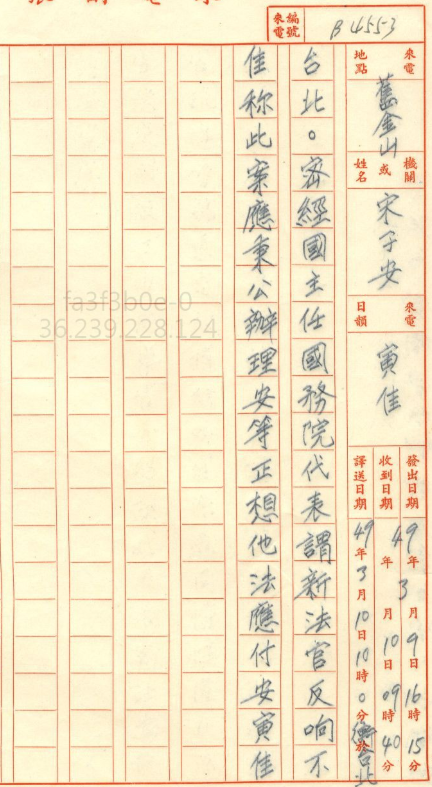 來電編號 B455-3
來電地點 舊金山
機關或姓名 宋子安
來電日韻 寅佳
發出日期 49年3月9日16時15分
收到日期 年 月10日09時40分
譯送日期 49年3月10日10時0分於台北
台北。密經國主任國務院代表謂新法官反响不
佳称此案應秉公辦理安等正想他法應付安寅佳
fa3f3b0e-0
36.239.228.124